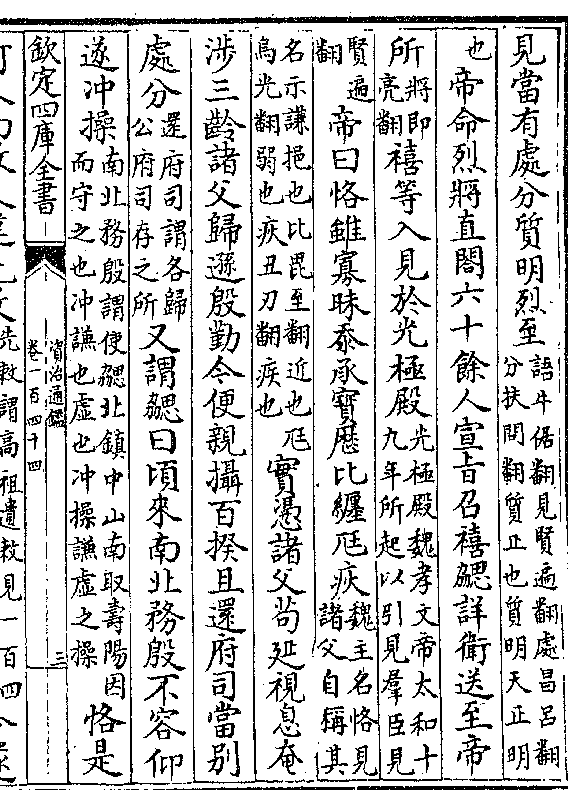 見當有處分質明烈至語牛倨翻見賢遍翻處昌呂翻分扶問翻質正也質明天正明
也帝命烈將直閤六十餘人宣旨召禧勰詳衛送至帝
所將即亮翻禧等入見於光極殿光極殿魏孝文帝太和十九年所起以引見羣臣見
賢遍翻帝曰恪雖寡昧忝承寶歷比纏尫疾魏主名恪見諸父自稱其
名示謙挹也比毘至翻近也尫烏光翻弱也疾丑刃翻疾也實憑諸父苟延視息奄
涉三齡諸父歸遜殷勤今便親攝百揆且還府司當別
處分還府司謂各歸公府司存之所又謂勰曰頃來南北務殷不容仰
遂冲操南北務殷謂使勰北鎮中山南取壽陽因而守之也冲謙也虛也冲操謙虛之操恪是
欽定四庫全書 資治通鑑 卷一百四十四 三
先敕謂高祖遺敕見一百四